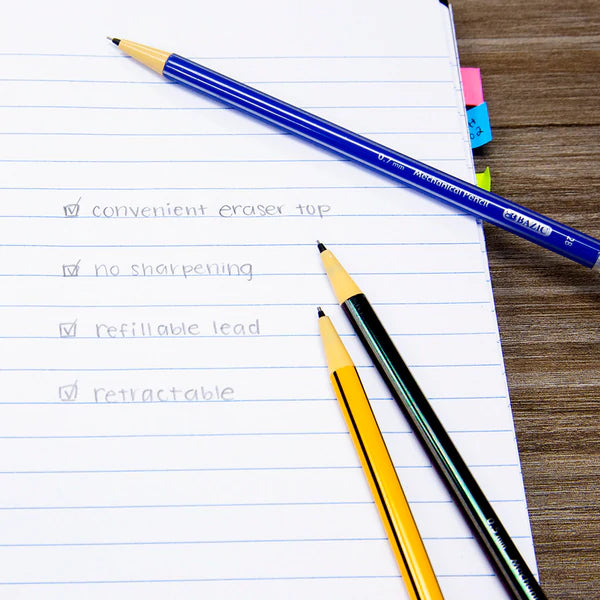 convenient eraser top
no sharpening
refillable lead
retractable
0.7mm Mechanical Pencil BAZIC 2B